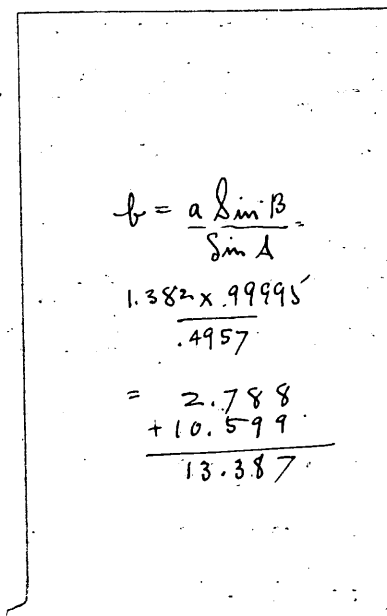 b = a Sin B =
Sin A
1.382 x .99995
.4957
= 2.788
+ 10.599
13.387